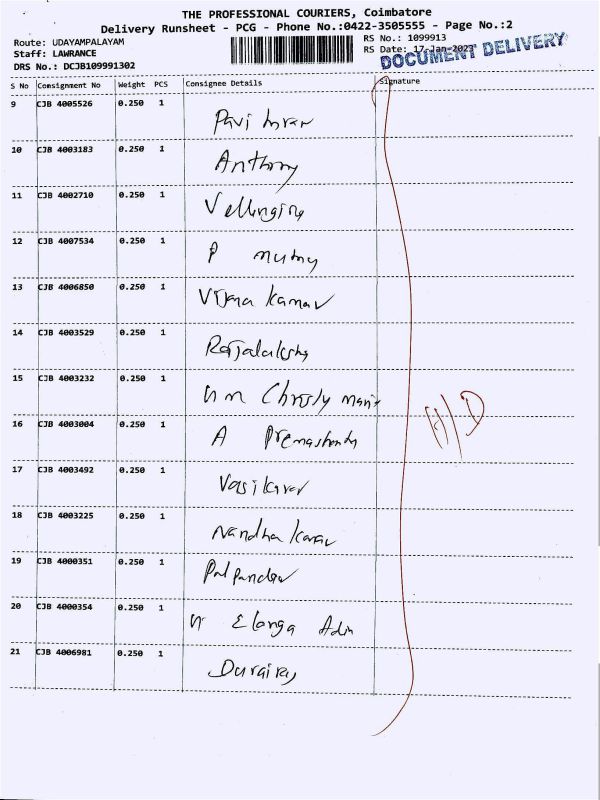 THE PROFESSIONAL COURIERS, Coimbatore
Delivery Runsheet - PCG - Phone No.:0422-3505555 - Page No.:2
Route: UDAYAMPALAYAM
RS No.: 1099913
Staff: LAWRANCE
RS Date: 17-Jan-2023
DRS No.: DCJB109991302
DOCUMENT DELIVERY
S No Consignment No Weight PCS Consignee Details Signature
9 CJB 4005526 0.250 1
Pavi
10 CJB 4003183 0.250 1
Anthony
11 CJB 4002710 0.250 1
12 CJB 4007534 0.250 1
P
13 CJB 4006850 0.250 1
Kamar
14 CJB 4003529 0.250 1
15 CJB 4003232 0.250 1
16 CJB 4003004 0.250 1
A
H/D
17 CJB 4003492 0.250 1
18 CJB 4003225 0.250 1
Nandha
19 CJB 4000351 0.250 1
20 CJB 4000354 0.250 1
Elanga
21 CJB 4006981 0.250 1